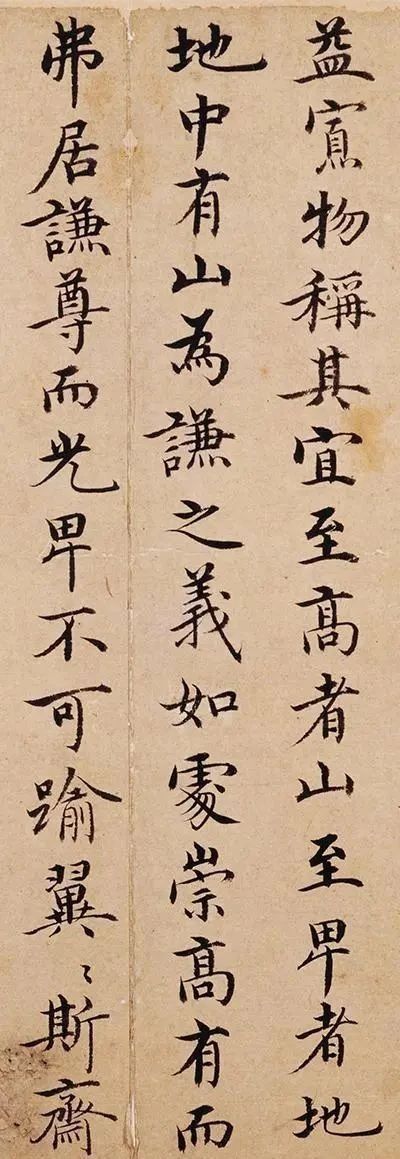 益寡物稱其宜至高者山至卑者地
地中有山為謙之義如處崇高有而
弗居謙尊而光卑不可踰翼〻斯齋